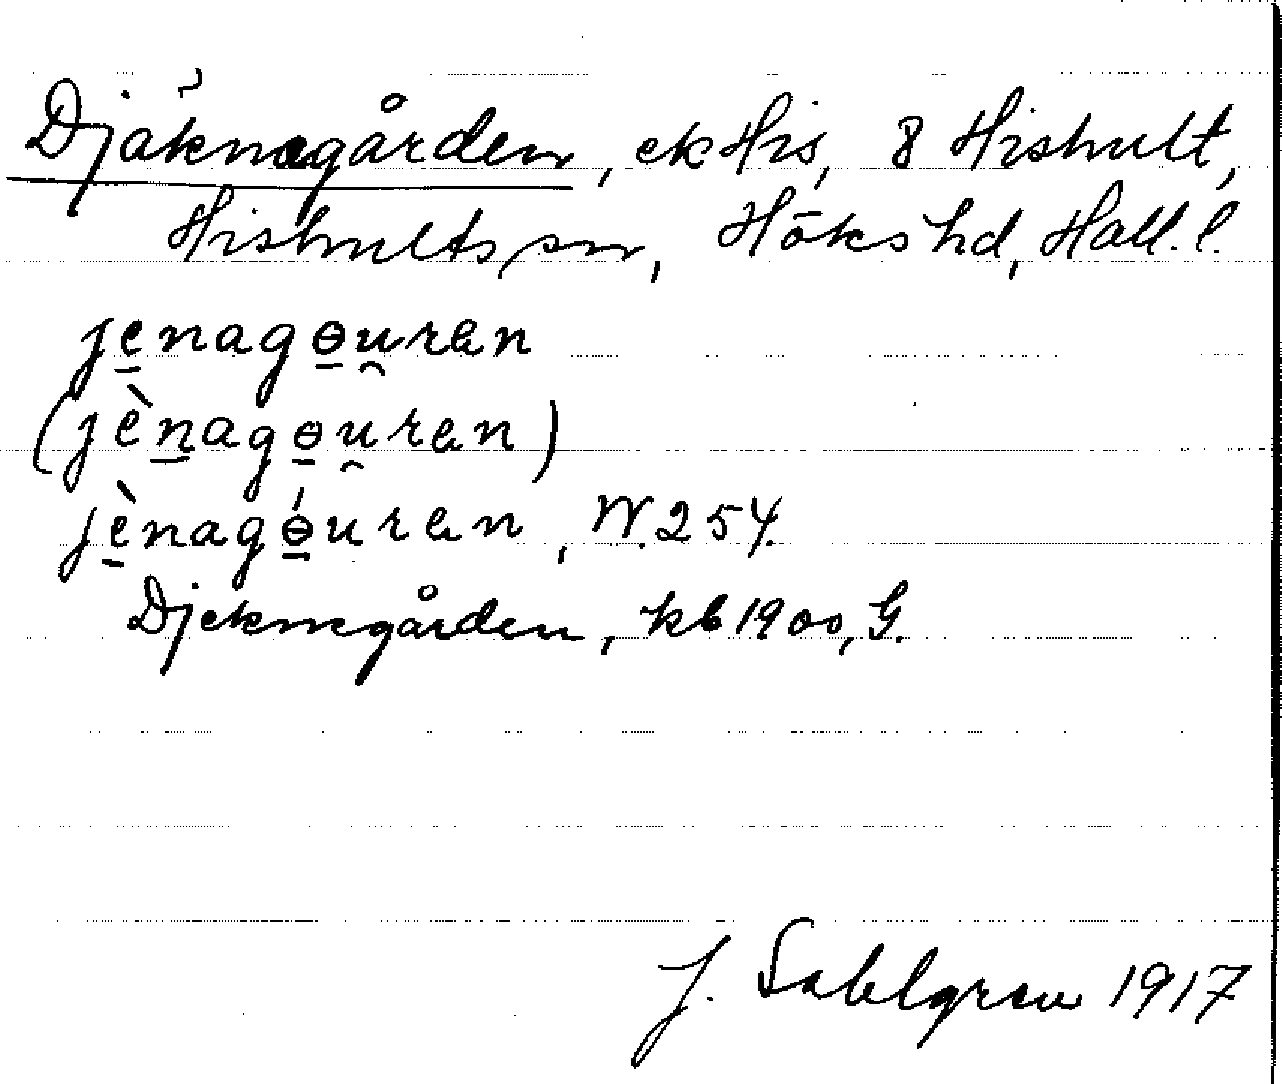 Djäknagården, ek His, 8 Hishult,
Hishults sn, Höks hd, Hall. l.
jenagɵu̯rɐn
(jènagɵu̯rɐn)
jènagɵ́urɐn, W. 254.
Djeknegården, kb 1900, G.
J. Sahlgren 1917